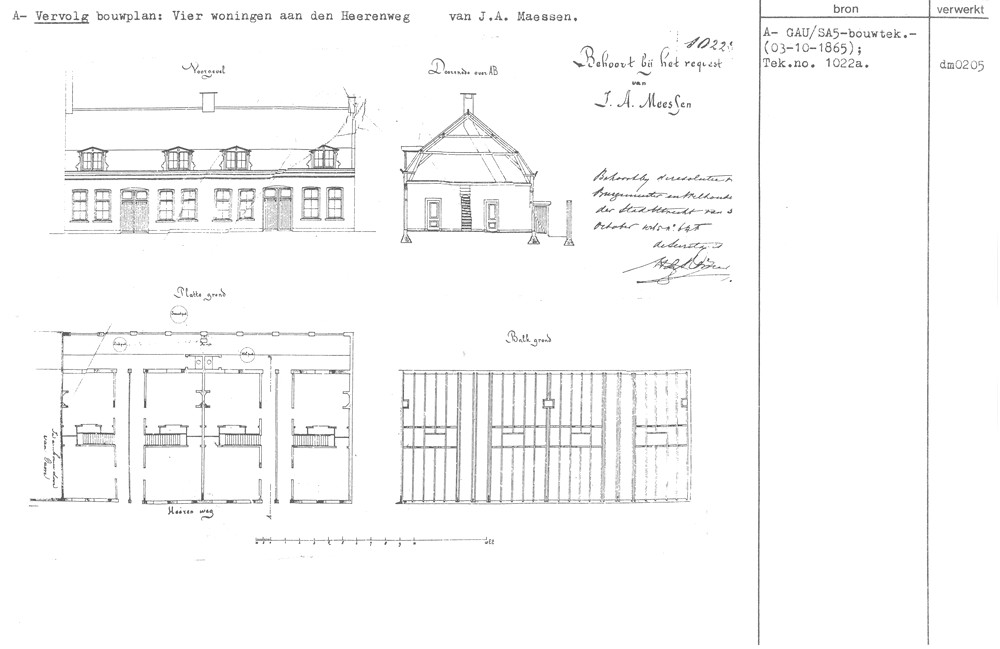 A- Vervolg bouwplan: Vier woningen aan den Heerenweg van J.A. Maessen.
bron
verwerkt
A- GAU/SA5-bouwtek.-
(03-10-1865);
Tek.no. 1022a.
dm0205
Voorgevel
Doorsnede over AB
Behoort bij het request
van
J. A. Maessen
Behoort by de resolutie
Burgemeester en Wethouders
der Stad Utrecht van 3
October
Platte grond
Balk grond
Heeren weg